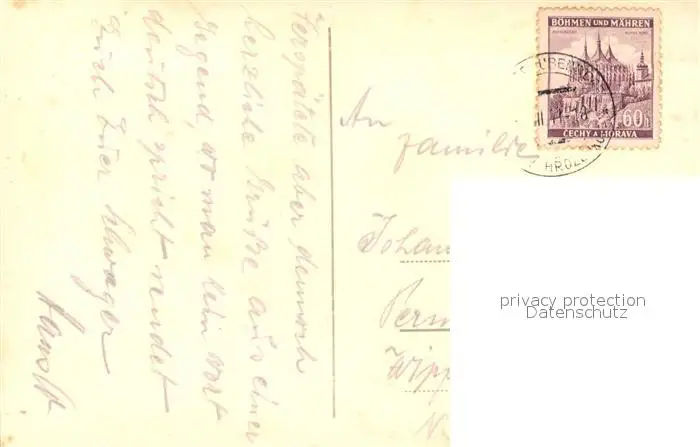 Verspätete aber dennoch
herzliche Grüße aus einer
Gegend, wo man kein Wort
deutsch spricht sendet
Euch Euer Schwager
An
Familie
Johan
Pern
Wipp
N.
BÖHMEN UND MÄHREN
60h
ČECHY A MORAVA
HROZ
privacy protection
Datenschutz